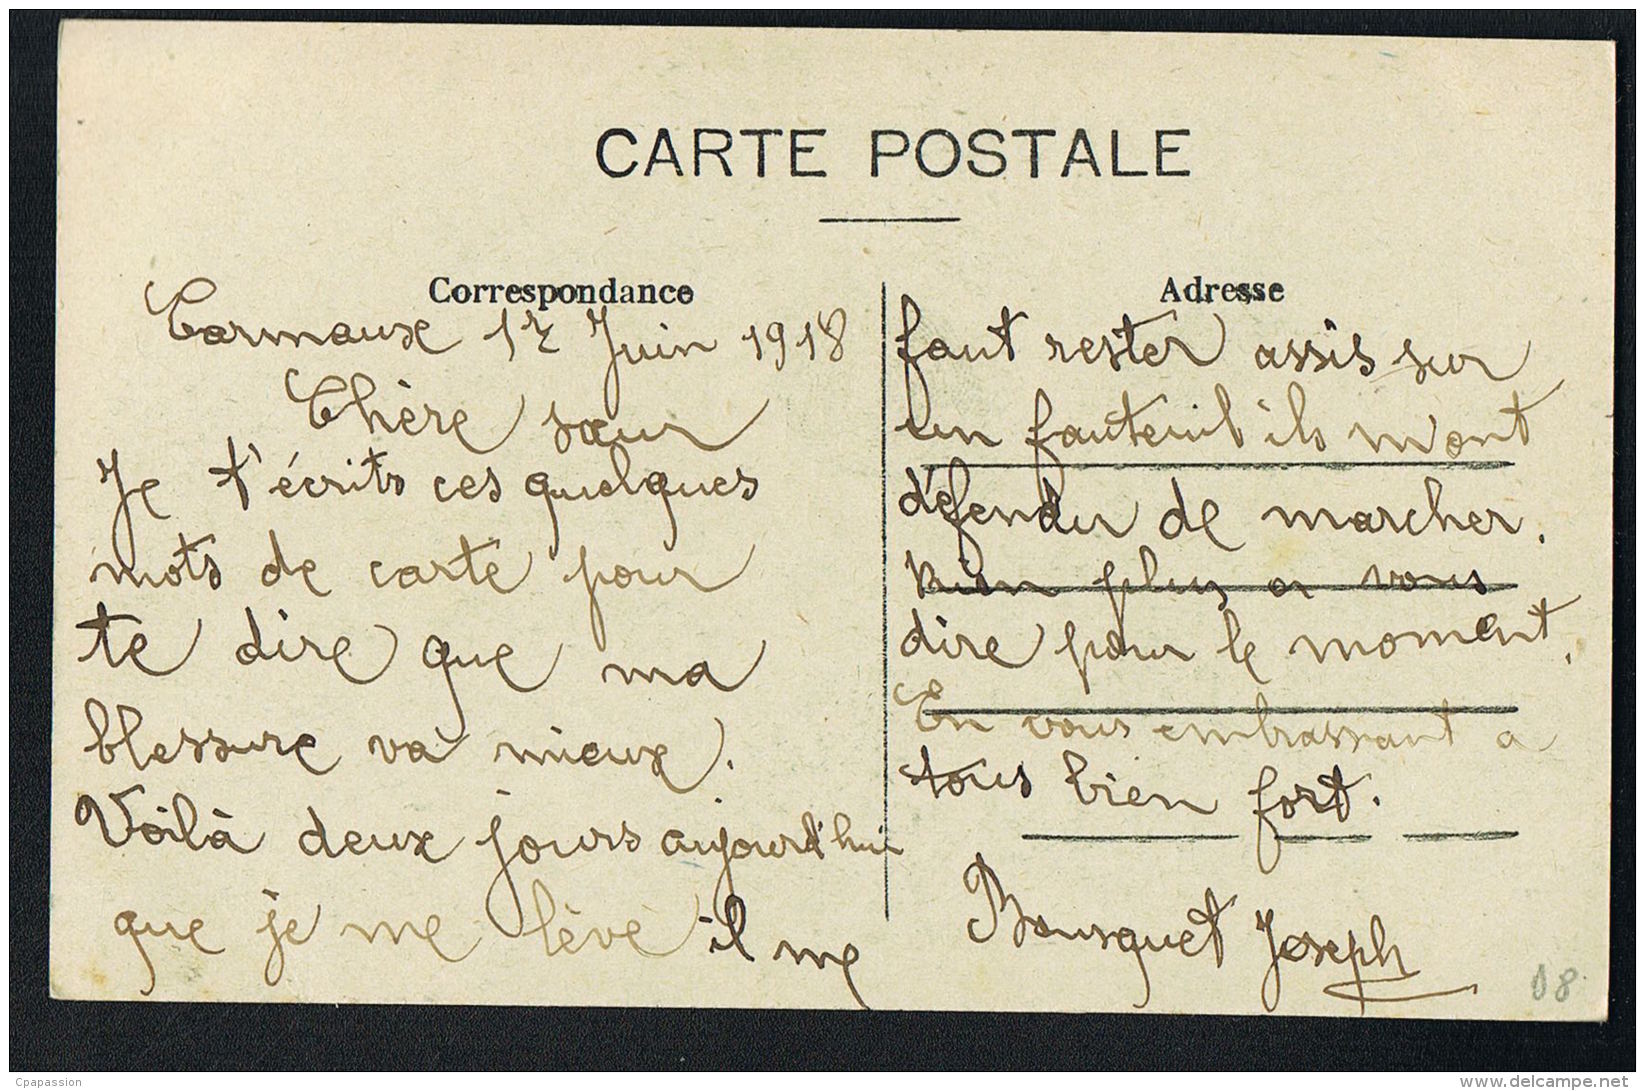 CARTE POSTALE
Correspondance
Carmaux 12 Juin 1918
Chère sœur
Je t'écrits ces quelques
mots de carte pour
te dire que ma
blessure va mieux.
Voilà deux jours aujourd'hui
que je me lève il me
Adresse
faut rester assis sur
un fauteuil ils m'ont
défendu de marcher.
Rien plus a vous
dire pour le moment.
En vous embrassant a
tous bien fort.
Bousquet Joseph
08
Cpapassion
www.delcampe.net